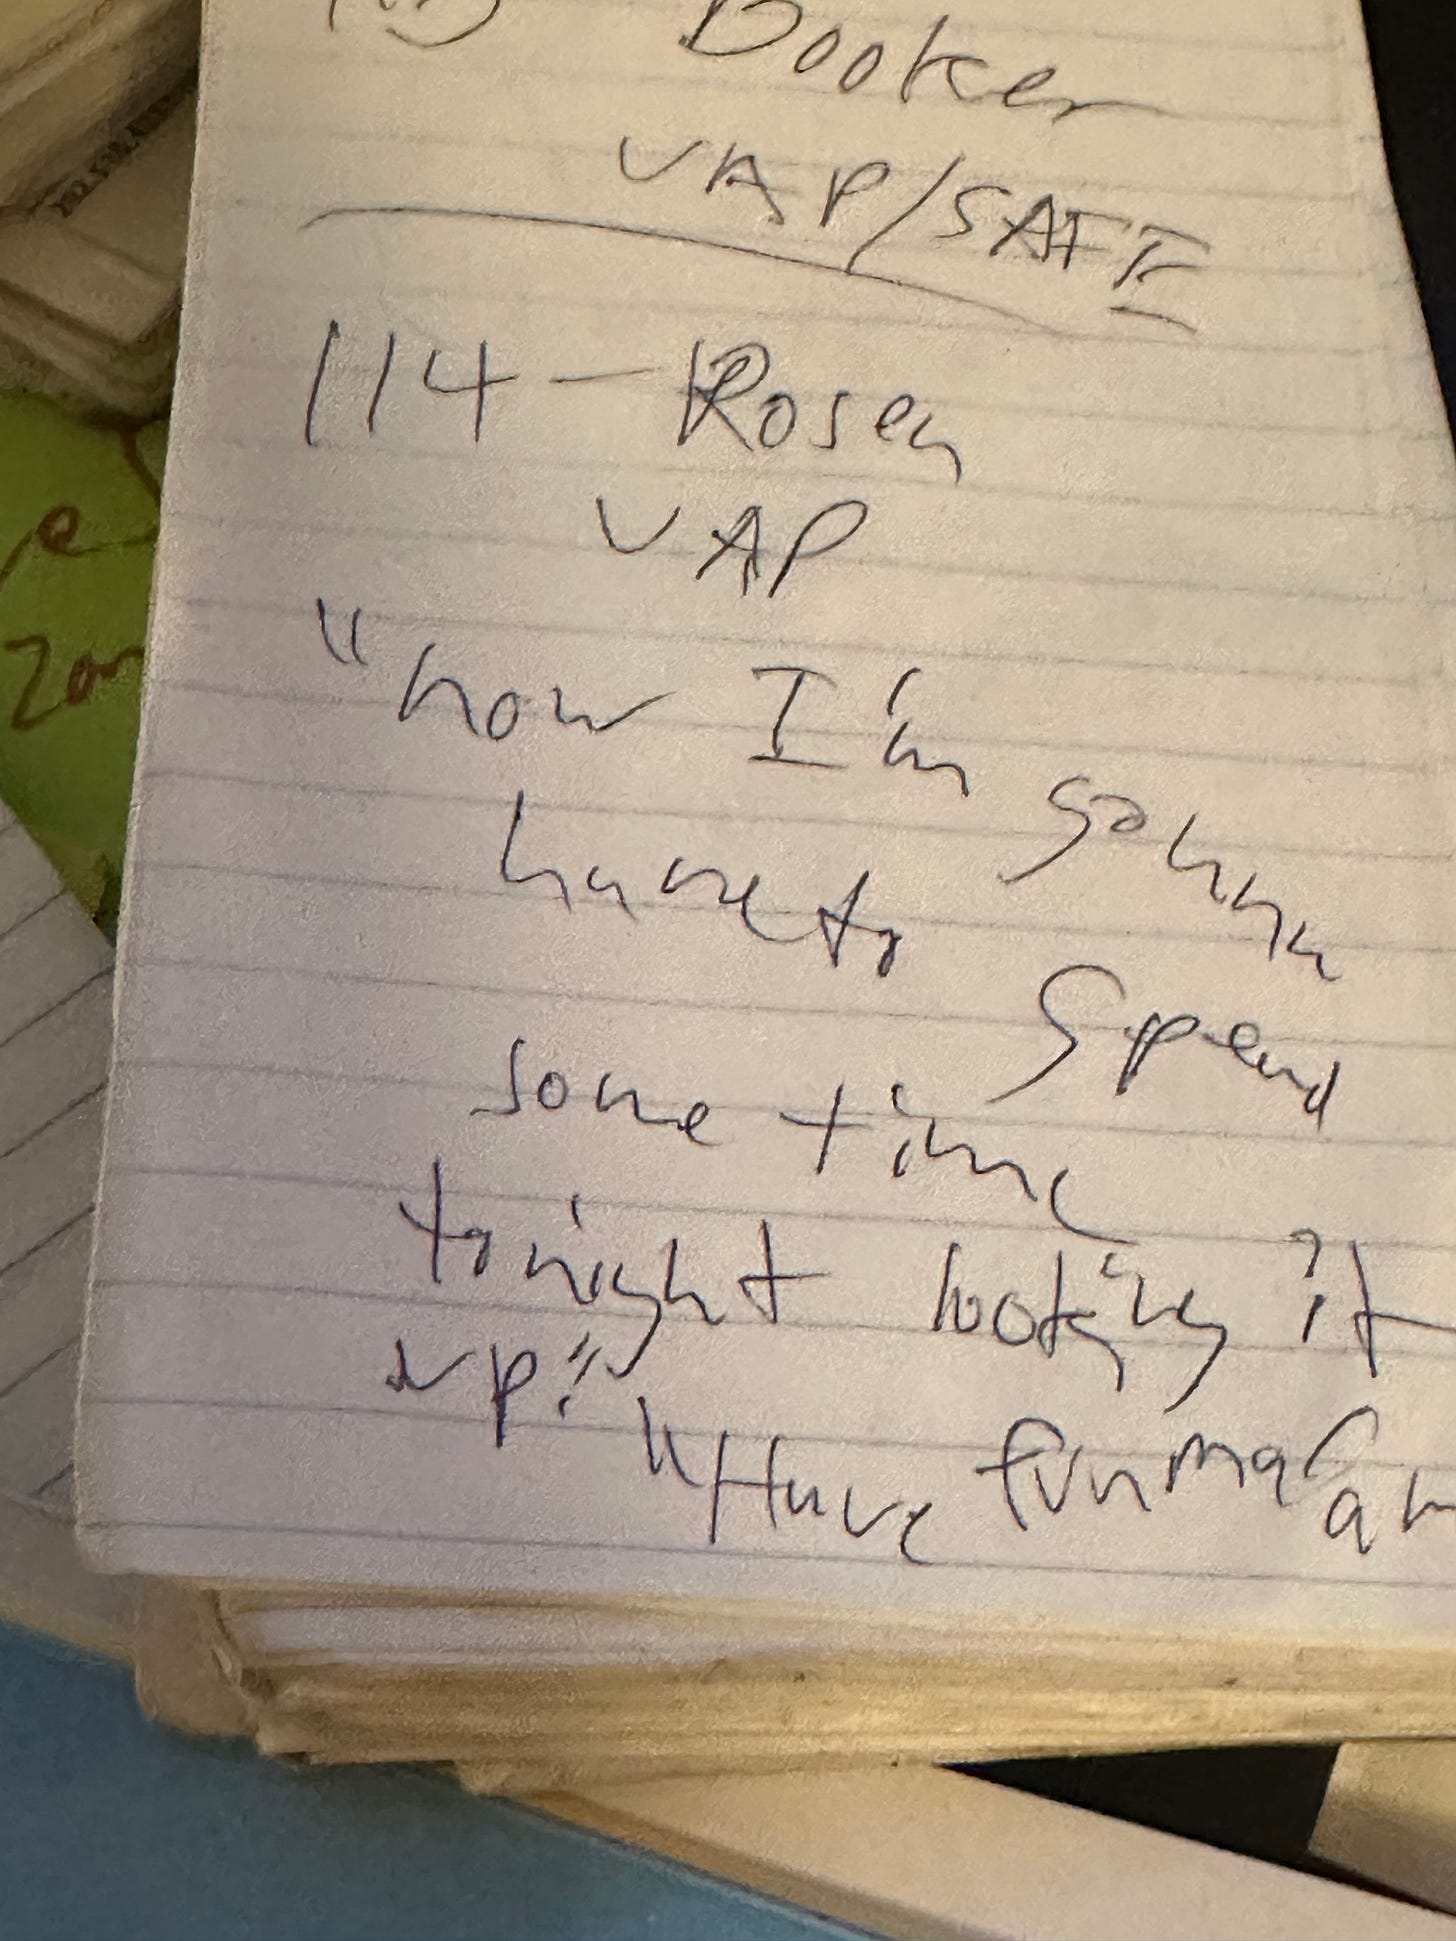 Booker
VAP/SAFE
114 - Rosen
VAP
"now I'm gonna
have to spend
some time
tonight looking it
up!" "Have fun ma'am